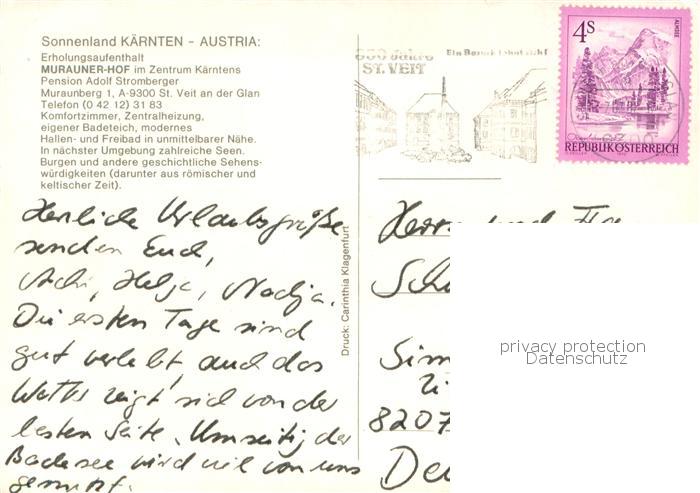 Sonnenland KÄRNTEN - AUSTRIA:
Erholungsaufenthalt
MURAUNER-HOF im Zentrum Kärntens
Pension Adolf Stromberger
Muraunberg 1, A-9300 St. Veit an der Glan
Telefon (0 42 12) 31 83
Komfortzimmer, Zentralheizung,
eigener Badeteich, modernes
Hallen- und Freibad in unmittelbarer Nähe.
In nächster Umgebung zahlreiche Seen.
Burgen und andere geschichtliche Sehens-
würdigkeiten (darunter aus römischer und
keltischer Zeit).
Herzliche Urlaubsgrüße
senden Euch,
Achi, Helga, Nadja.
Die ersten Tage sind
gut verlebt, auch das
Wetter zeigt sich von der
besten Seite. Umseitig der
Badesee wird viel von uns
genutzt.
Druck: Carinthia Klagenfurt
850 Jahre
ST. VEIT
Ein Besuch lohnt sich!
4S
ALMSEE
REPUBLIK ÖSTERREICH
Herrn und
Sch
Sim
8207
De
privacy protection
Datenschutz